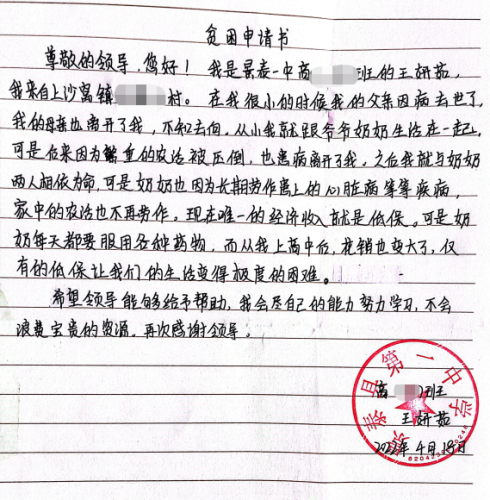 贫困申请书
尊敬的领导，您好！我是景泰一中高班的王妍茹，
我来自上沙窝镇村。在我很小的时候我的父亲因病去世了，
我的母亲也离开了我，不知去向，从小我就跟爷爷奶奶生活在一起，
可是后来因为繁重的农活被压倒，也患病离开了我，之后我就与奶奶
两人相依为命，可是奶奶也因为长期劳作患上的心脏病等等疾病，
家中的农活也不再劳作，现在唯一的经济收入就是低保。可是奶
奶每天都要服用各种药物，而从我上高中后，花销也变大了，仅
有的低保让我们的生活变得极度的困难。
希望领导能够给予帮助，我会尽自己的能力努力学习，不会
浪费宝贵的资源，再次感谢领导。
高班
王妍茹
2022年4月18日
景泰县第一中学